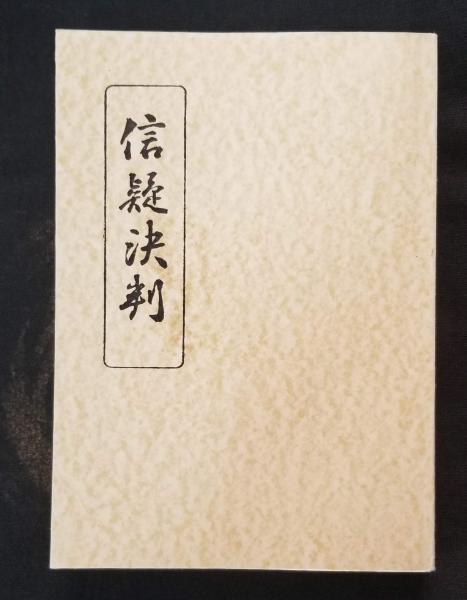 信疑決判